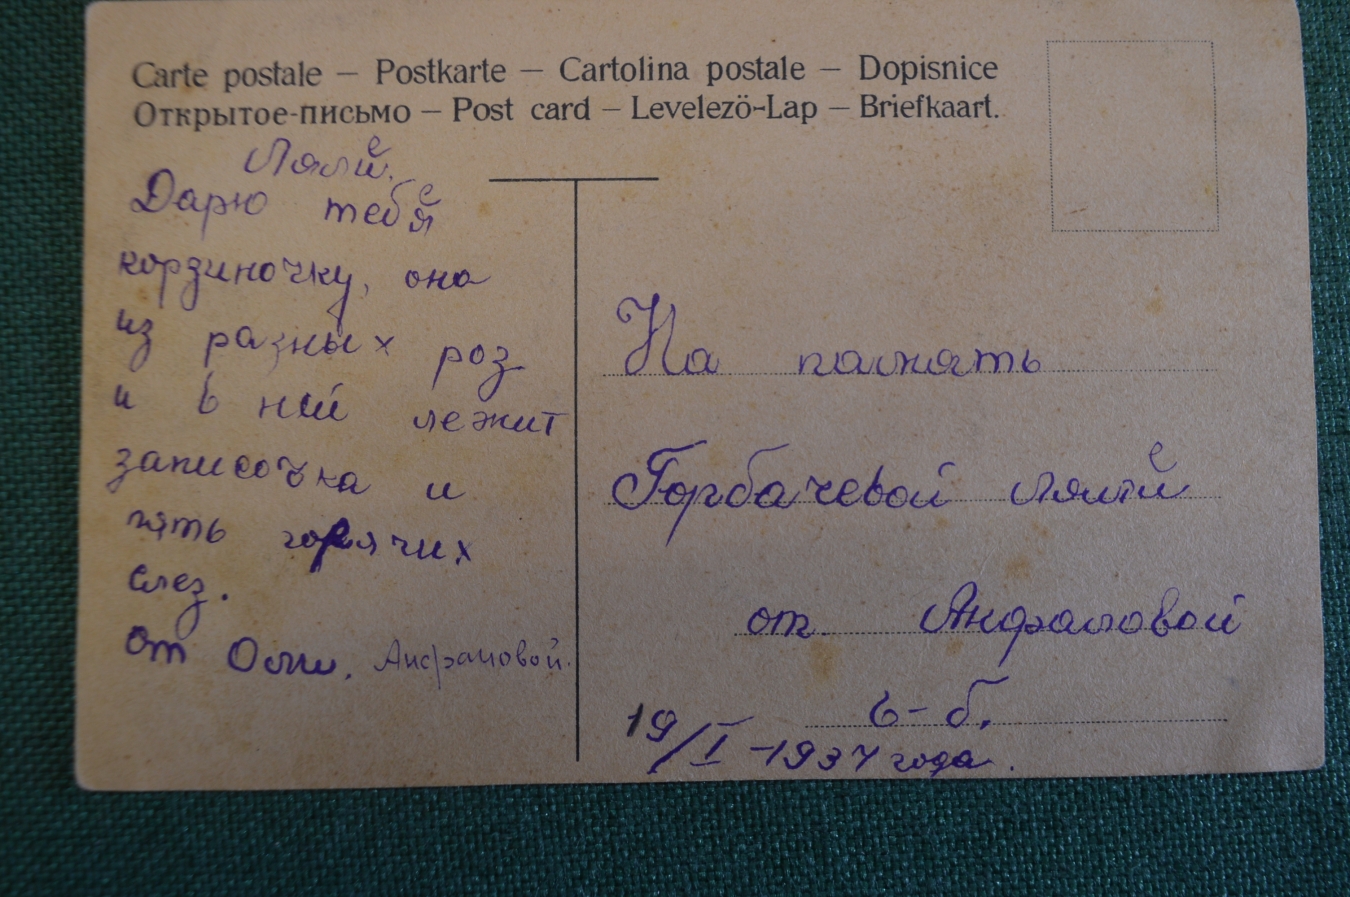 Carte postale – Postkarte – Cartolina postale – Dopisnice
Открытое-письмо – Post card – Levelezö-Lap – Briefkaart.
Ляле.
Дарю тебе
корзиночку, она
из разных роз
и в ней лежит
записочка и
пять горячих
слез.
от Оли. Анфаловой.
На память
Горбачевой Ляле
от Анфаловой
6-б.
19/I-1937 года.